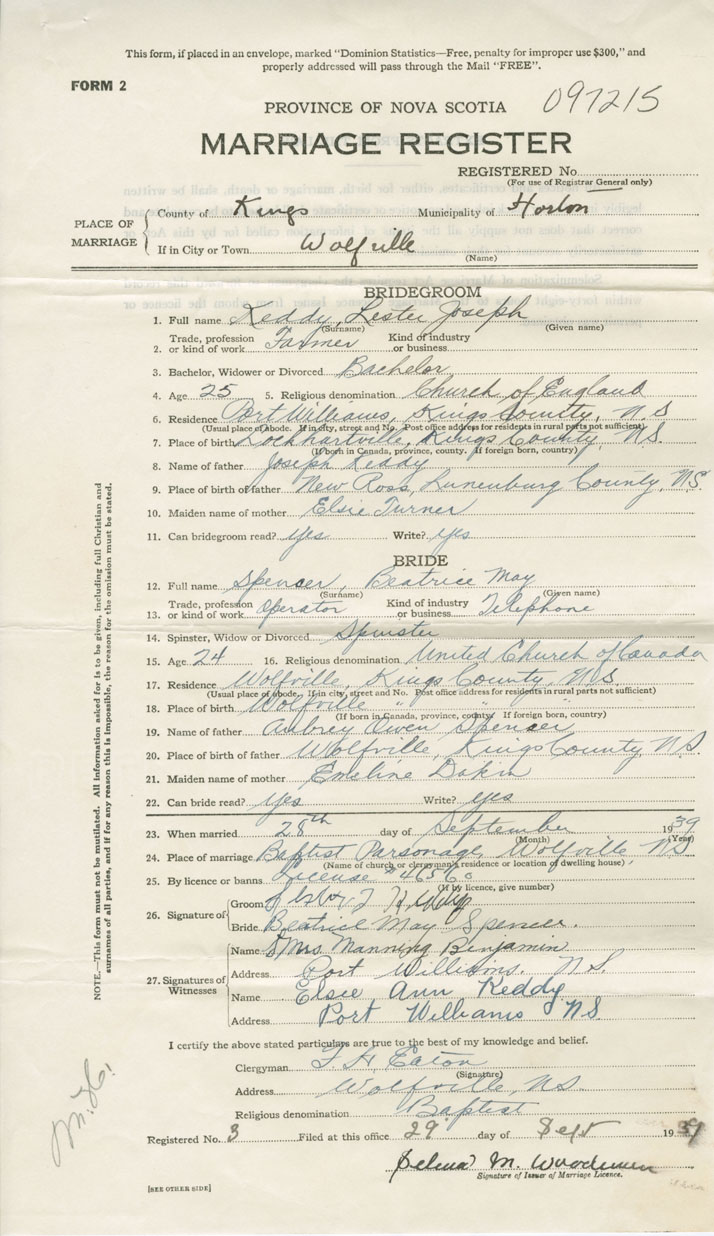 This form, if placed in an envelope, marked "Dominion Statistics—Free, penalty for improper use $300," and
properly addressed will pass through the Mail "FREE".
FORM 2
097215
PROVINCE OF NOVA SCOTIA
MARRIAGE REGISTER
REGISTERED No.
(For use of Registrar General only)
PLACE OF MARRIAGE
County of Kings Municipality of Horton
If in City or Town Wolfville
(Name)
BRIDEGROOM
1. Full name Keddy, Lester Joseph
(Surname) (Given name)
2. Trade, profession or kind of work Farmer Kind of industry or business
3. Bachelor, Widower or Divorced Bachelor
4. Age 25 5. Religious denomination Church of England
6. Residence Port Williams, Kings County, N.S
(Usual place of abode. If in city, street and No. Post office address for residents in rural parts not sufficient)
7. Place of birth Lockhartville, Kings County, N.S.
(If born in Canada, province, county. If foreign born, country)
8. Name of father Joseph Keddy
9. Place of birth of father New Ross, Lunenburg County, N.S.
10. Maiden name of mother Elsie Turner
11. Can bridegroom read? yes Write? yes
BRIDE
12. Full name Spencer, Beatrice May
(Surname) (Given name)
13. Trade, profession or kind of work Operator Kind of industry or business Telephone
14. Spinster, Widow or Divorced Spinster
15. Age 24 16. Religious denomination United Church of Canada
17. Residence Wolfville, Kings County, N.S.
(Usual place of abode. If in city, street and No. Post office address for residents in rural parts not sufficient)
18. Place of birth Wolfville " " "
(If born in Canada, province, county. If foreign born, country)
19. Name of father Aubrey Owen Spencer
20. Place of birth of father Wolfville, Kings County N.S.
21. Maiden name of mother Emeline Dakin
22. Can bride read? yes Write? yes
23. When married 28th day of September 1939
(Month) (Year)
24. Place of marriage Baptist Parsonage, Wolfville, N.S
(Name of church or clergyman's residence or location of dwelling house)
25. By licence or banns License #
(If by licence, give number)
26. Signature of
Groom
Bride Beatrice May Spencer.
27. Signatures of Witnesses
Name Mrs Manning Benjamin
Address Port Williams. N.S.
Name Elsie Ann Keddy
Address Port Williams NS.
I certify the above stated particulars are true to the best of my knowledge and belief.
Clergyman F. H. Eaton
(Signature)
Address Wolfville, N.S.
Religious denomination Baptist
Registered No. 3 Filed at this office 29 day of Sept 1939
M. Woodman
Signature of Issuer of Marriage Licence.
[SEE OTHER SIDE]
NOTE.—This form must not be mutilated. All information asked for is to be given, including full Christian and
surnames of all parties, and if for any reason this is impossible, the reason for the omission must be stated.